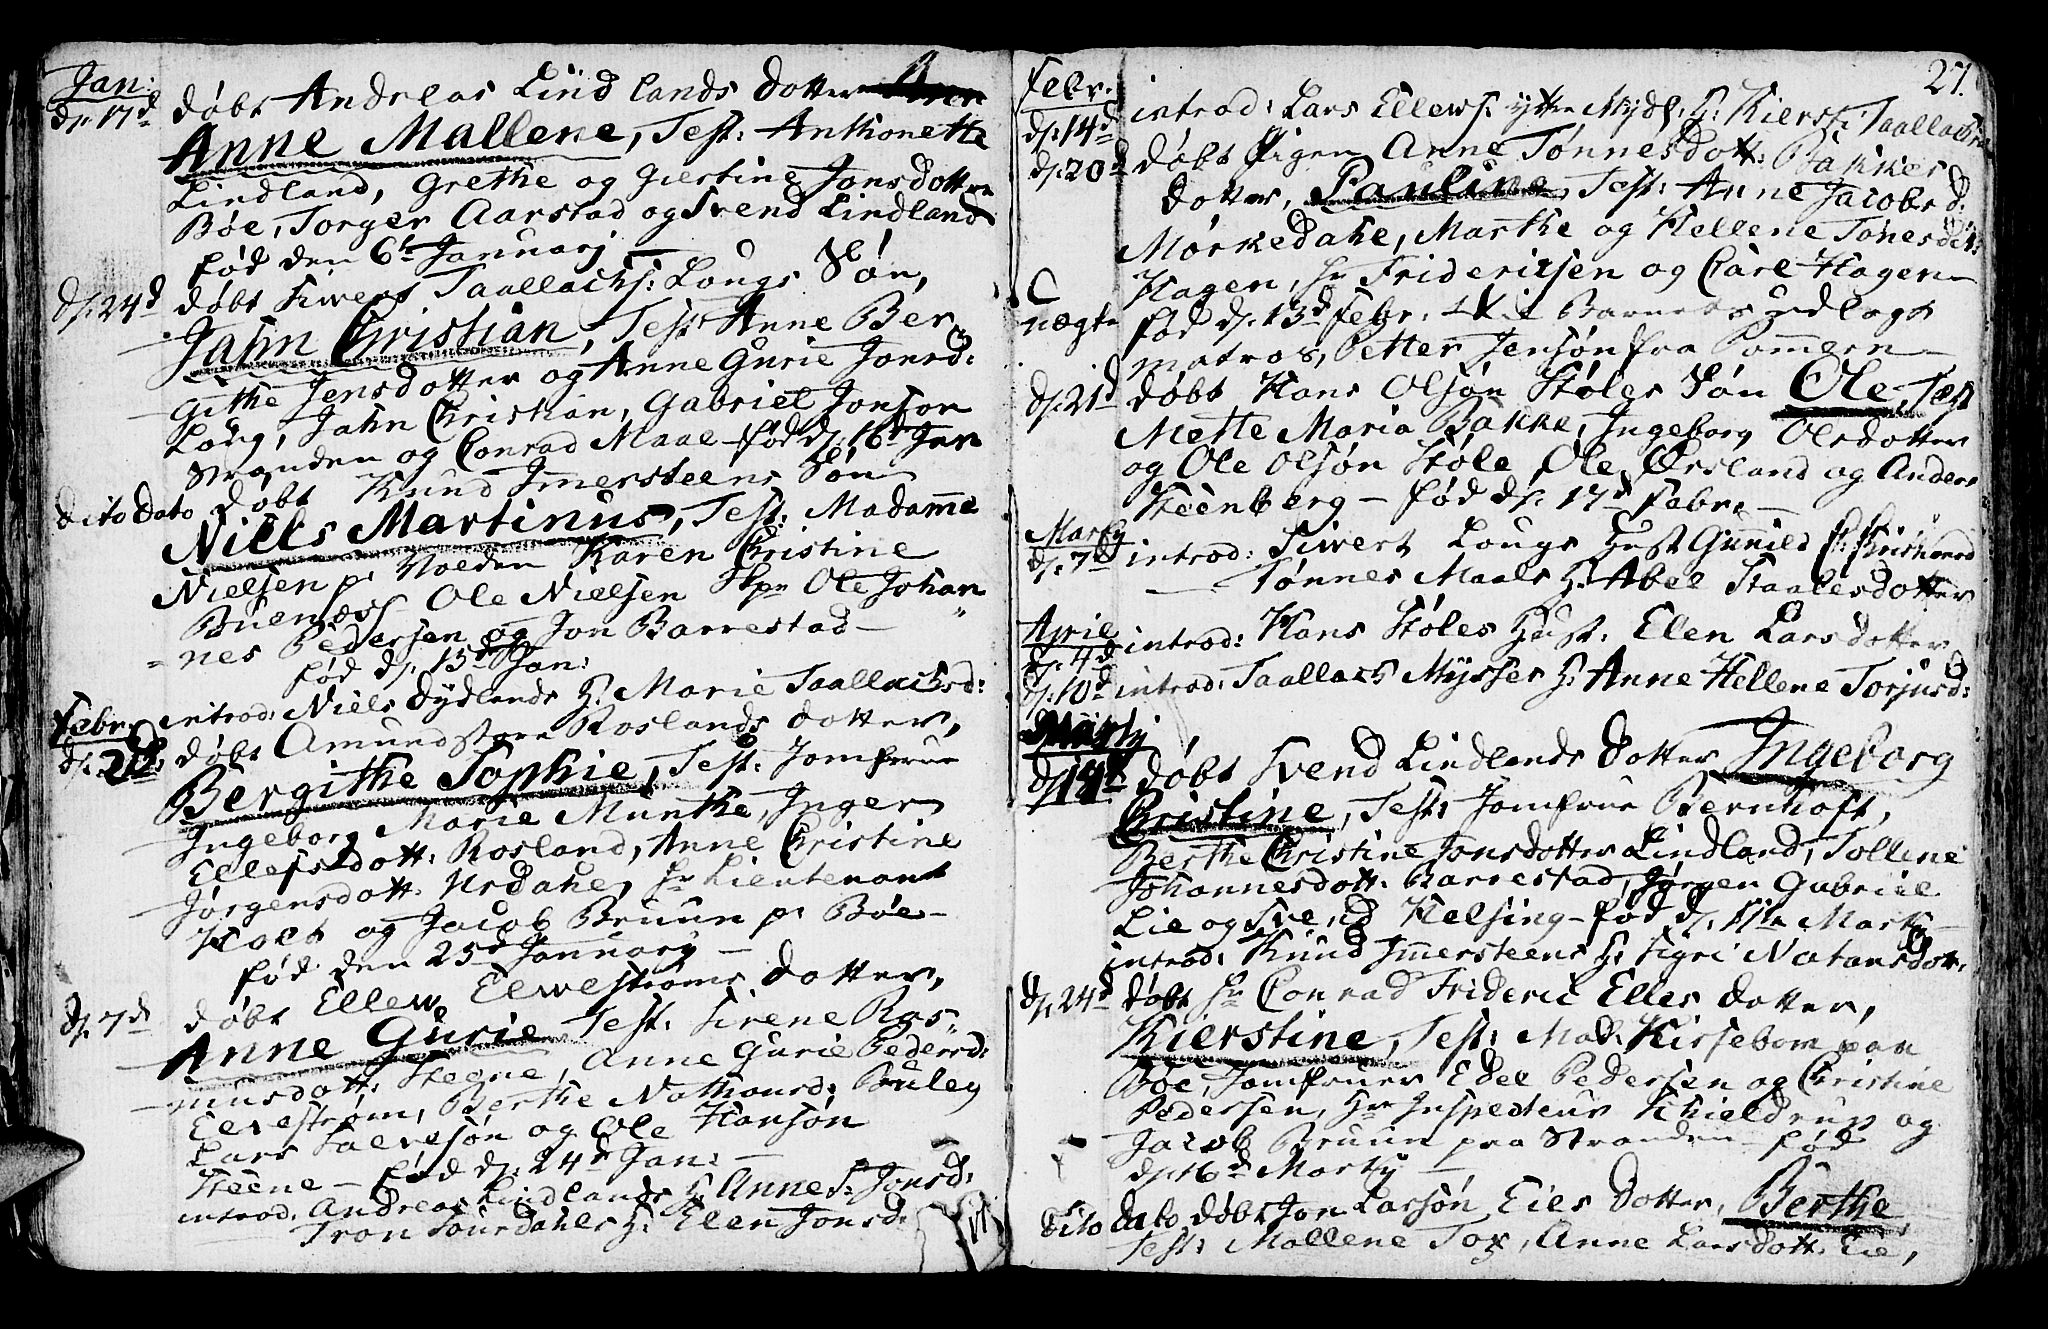 Jan:
d. 17d døbt Andreas Lindlands dotter
Anne Mallene, Test: Anthonette
Lindland, Grethe og Giestine Jonsdotter
Bøe, Torger Aarstad og Svend Lindland
fød den 6t Januarj —
d. 24d døbt Siwert Taallachs: Longs Søn,
Jahn Christian, Test: Anne Ber
githe Jensdotter og Anne Gurie Jonsd:
Long, Jahn Christian, Gabriel Jonson
Stranden og Conrad Maal — fød d. 16d Jan
dito dato døbt Knud Immersteens Søn
Niels Martinus, Test: Madamme
Nielsen p. Volden Karen Christine
Buenæss Ole Nielsen Skpr Ole Johan
= nes Pedersen og Jon Barrestad —
fød d. 15d Jan:
Febr. introd: Niels Dydlands H. Marie Taallachsd:
d. 2d døbt Amund store Roslands dotter,
Bergithe Sophie, Test: Jomfrue
Ingeborg Marie Munthe, Inger
Ellefsdott: Rosland, Anne Christine
Jørgensdott: Urdahl, Hr Lieutenant
Holt og Jacob Bruun p. Bøe —
fød den 25d January —
d. 7d døbt Ellew Elwestrøms dotter,
Anne Gurie Test: Sirene Ras„
musdott: Stegne, Anne Gurie Pedersd:
Elvestrøm, Berthe Nathansd: Bruley
Lars Salvesøn og Ole Hansøn
Steene — fød d. 24d Jan: —
introd: Andreas Lindlands H. Anne S: Jonsd:
Tron Suurdahls H: Elen Jonsd:
27.
Febr. introd: Lars Ellews: ytre Mydl: H: Kierst: Taallachsd
d. 14d
d. 20d døbt Pigen Anne Tønnesdott: Bakkes
dotter, Pauline, Test: Anne Jacobsd.
Mørkedahl, Marthe og Hellene Tønesdot:
Hagen, Hr Friderichsen og Carl Hagen
nægte fød d. 13d Febr: Barnets udlagt
matros, Petter Jensøn fra Pomern —
d. 21d døbt Hans Olsøn Støles Søn Ole, Test
Mette Maria Bakke, Ingeborg Olsdotter
og Ole Olsøn Støle, Ole Ørsland og Anders
Steenberg — fød d. 17d Febr: —
Marty
d. 7d introd: Siwert Longs Hust Gunild
— Tønnes Maals H: Abel Staalesdotter
April
d. 4d introd: Hans Støles Hust: Elen Larsdotter
d. 10d introd: Taallach Mysser H: Anne Hellene Torjusd:
Marty
d. 14d døbt Svend Lindlands dotter Ingeborg
Christine, Test: Jomfrue Bernhoft,
Berthe Christine Jonsdotter Lindland, Tollene
Johannesdott: Barrestad, Jørgen Gabriel
Lie og Svend Helsing — fød d. 11te Marty —
introd: Knud Immersteens H: Sigri Natansdott.
d. 24d døbt Hr Conrad Frideric Elles dotter,
Kierstine, Test: Mad: Kissebom paa
Bøe, Jomfruer Edel Pedersen og Christine
Pedersen, Hr Inspecteur Schieldrup og
Jacob Bruun paa Stranden — fød
d. 16d Marty —
dito dato døbt Jon Larssøn Eies dotter, Berthe
Test: Mallene Tox, Anne Larsdott: Eie,